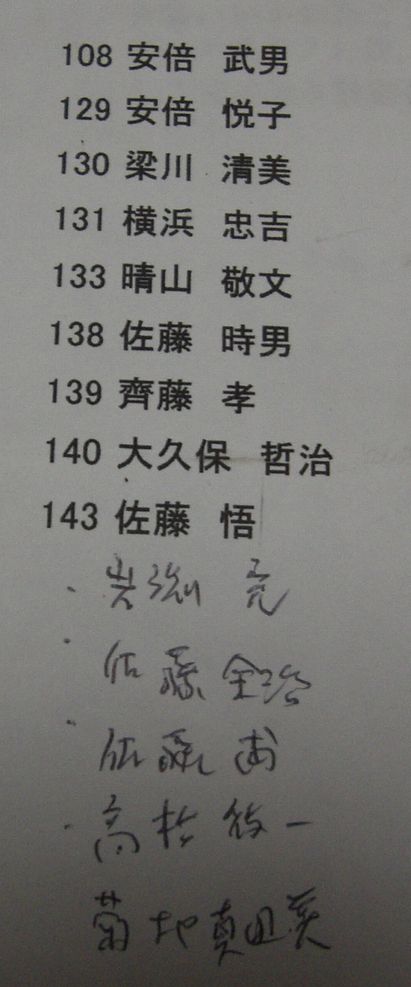 108 安倍 武男
129 安倍 悦子
130 梁川 清美
131 横浜 忠吉
133 晴山 敬文
138 佐藤 時男
139 齊藤 孝
140 大久保 哲治
143 佐藤 悟
・岩渕 亮
・佐藤 金治
・佐藤
・高橋 一
菊地 真由美